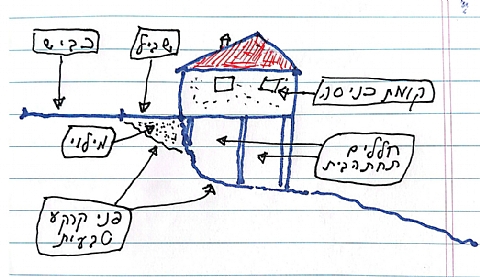 כביש
שביל
קומת כניסה
מילוי
חללים
תחת הבית
פני קרקע
טבעית